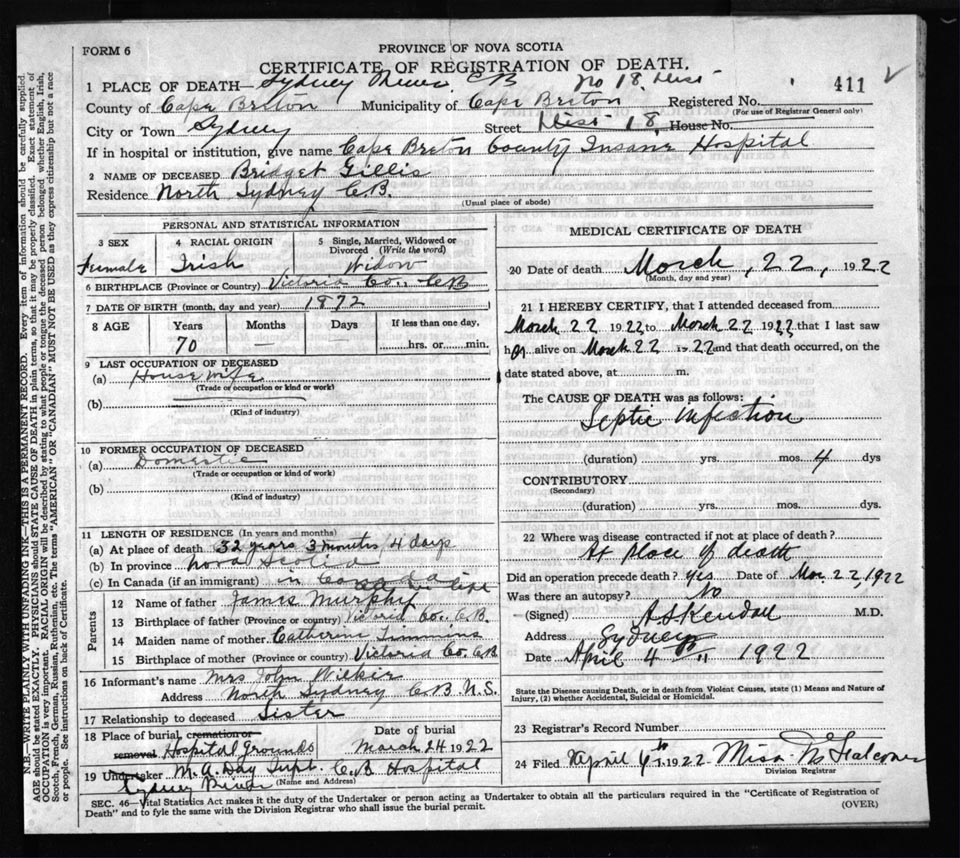 FORM 6
PROVINCE OF NOVA SCOTIA
CERTIFICATE OF REGISTRATION OF DEATH.
411
1 PLACE OF DEATH—Sydney River CB No 18. Dist
County of Cape Briton Municipality of Cape Briton Registered No.
(For use of Registrar General only)
City or Town Sydney Street Dist 18, House No.
If in hospital or institution, give name Cape Breton County Insane Hospital
2 NAME OF DECEASED Bridget Gillis
Residence North Sydney C.B.
(Usual place of abode)
PERSONAL AND STATISTICAL INFORMATION
3 SEX 4 RACIAL ORIGIN 5 Single, Married, Widowed or Divorced (Write the word)
Female Irish Widow
6 BIRTHPLACE (Province or Country) Victoria Co., CB
7 DATE OF BIRTH (month, day and year) 1872
8 AGE Years Months Days If less than one day,
70 — — hrs. or min.
9 LAST OCCUPATION OF DECEASED
(a) House wife
(Trade or occupation or kind or work)
(b)
(Kind of industry)
10 FORMER OCCUPATION OF DECEASED
(a) Domestic
(Trade or occupation or kind of work)
(b)
(Kind of industry)
11 LENGTH OF RESIDENCE (In years and months)
(a) At place of death 32 years 3 months, 4 days
(b) In province Nova Scotia
(c) In Canada (if an immigrant) in Canada all life
Parents
12 Name of father James Murphy
13 Birthplace of father (Province or country) Victoria Co., C.B.
14 Maiden name of mother Catherine Timmins
15 Birthplace of mother (Province or country) Victoria Co. CB
16 Informant's name Mrs John Wilkie
Address North Sydney C.B. N.S.
17 Relationship to deceased Sister
18 Place of burial, cremation or removal Hospital Grounds Date of burial March 24 1922
19 Undertaker M. A. Day Supt. C.B Hospital
Sydney River (Name and Address)
MEDICAL CERTIFICATE OF DEATH
20 Date of death March, 22, 1922
(Month, day and year)
21 I HEREBY CERTIFY, that I attended deceased from
March 22 1922 to March 22 1922 that I last saw
her alive on March 22 1922 and that death occurred, on the
date stated above, at m.
The CAUSE OF DEATH was as follows:
Septic Infection
(duration) yrs. mos. 4 dys
CONTRIBUTORY
(Secondary)
(duration) yrs. mos. dys.
22 Where was disease contracted if not at place of death?
At place of death
Did an operation precede death? Yes Date of Mar. 22, 1922
Was there an autopsy? No
(Signed) A S Kendall M.D.
Address Sydney
Date April 4th 1922
State the Disease causing Death, or in death from Violent Causes, state (1) Means and Nature of Injury, (2) whether Accidental, Suicidal or Homicidal.
23 Registrar's Record Number
24 Filed April 4th 1922 Miss
Division Registrar
SEC. 46—Vital Statistics Act makes it the duty of the Undertaker or person acting as Undertaker to obtain all the particulars required in the "Certificate of Registration of
Death" and to fyle the same with the Division Registrar who shall issue the burial permit.
(OVER)
N.B.—WRITE PLAINLY WITH UNFADING INK—THIS IS A PERMANENT RECORD. Every item of information should be carefully supplied.
AGE should be stated EXACTLY. PHYSICIANS should STATE CAUSE OF DEATH in plain terms, so that it may be properly classified. Exact statement of
OCCUPATION is very important. RACIAL ORIGIN will be described by stating to what people or tongue the deceased person belonged, whether English, Irish,
Scotch, French, German, Russian, Ruthenian, etc. The terms "AMERICAN" OR "CANADIAN" MUST NOT BE USED as they express citizenship but not a race
or people. See instructions on back of Certificate.